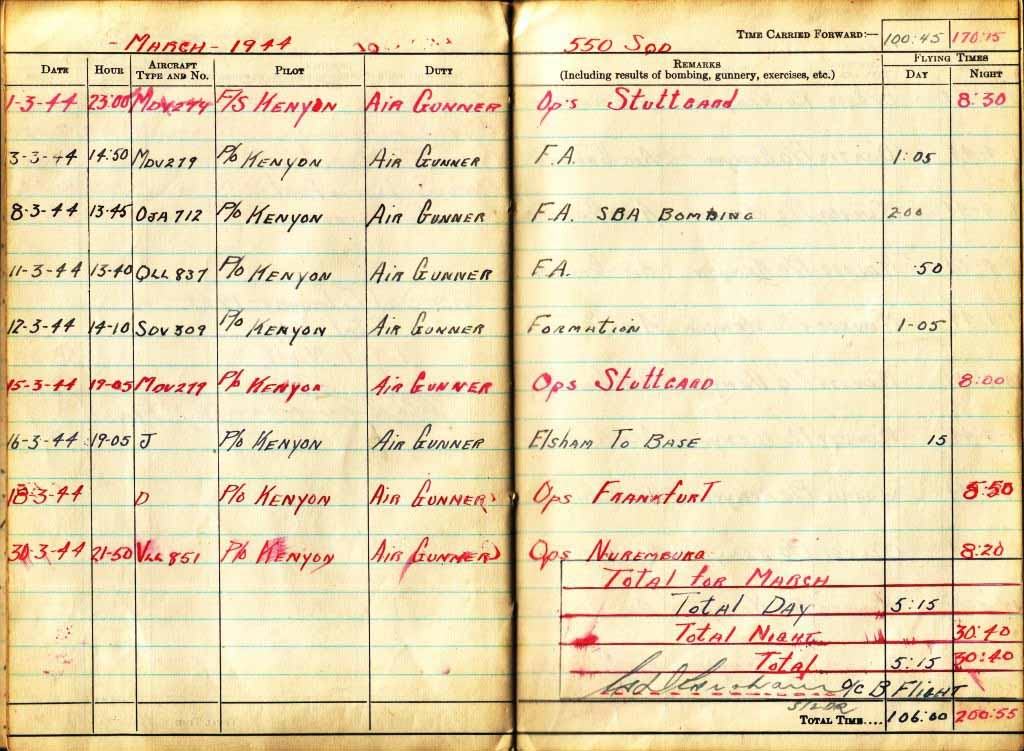 - MARCH - 1944
550 SQD TIME CARRIED FORWARD:— 100:45 170:15
DATE HOUR AIRCRAFT TYPE AND No. PILOT DUTY REMARKS (Including results of bombing, gunnery, exercises, etc.) FLYING TIMES DAY NIGHT
1-3-44 23:00 F/S KENYON AIR GUNNER Op's STUTTGARD 8:30
3-3-44 14:50 MDV279 P/O KENYON AIR GUNNER F.A. 1:05
8-3-44 13.45 OJA 712 P/O KENYON AIR GUNNER F.A. SBA BOMBING 2.00
11-3-44 13-40 QLL 837 P/O KENYON AIR GUNNER F.A. .50
12-3-44 14-10 SDV 309 P/O KENYON AIR GUNNER FORMATION 1-05
15-3-44 19-05 MDV279 P/O KENYON AIR GUNNER Ops STUTTGARD 8:00
16-3-44 19-05 J P/O KENYON AIR GUNNER ElSHAM TO BASE 15
18-3-44 D P/O KENYON AIR GUNNER Ops FRANKFURT
30-3-44 21-50 VLL 851 P/O KENYON AIR GUNNER Ops NUREMBURG 8:20
TOTAL FOR MARCH
TOTAL DAY 5:15
TOTAL NIGHT 30:40
TOTAL 5:15 30:40
O/C B FLIGHT
S/LDR
TOTAL TIME.... 106:00 200:55